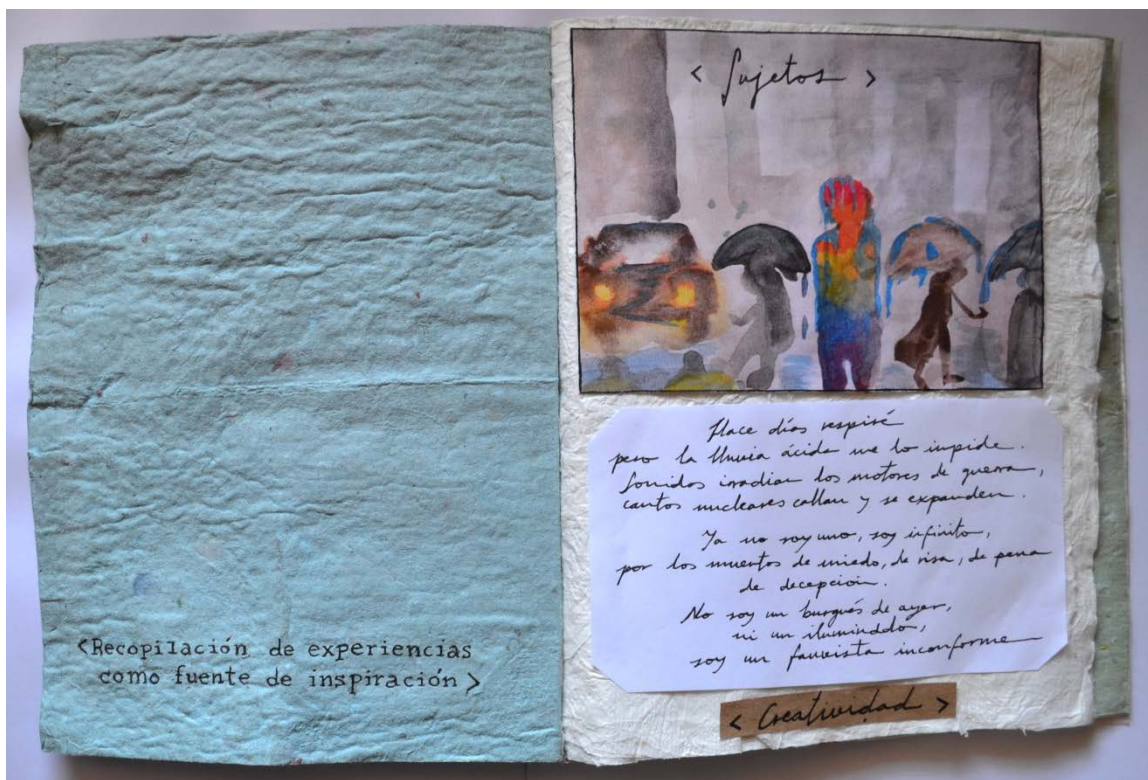 <Recopilación de experiencias
como fuente de inspiración>
< Sujetos >
Hace días respiré
pero la lluvia ácida me lo impide.
Sonidos irradian los motores de guerra,
cantos nucleares callan y se expanden.
Ya no soy uno, soy infinito,
por los muertos de miedo, de risa, de pena
de decepción.
No soy un burgués de ayer,
ni un iluminado,
soy un fauvista inconforme
< Creatividad >